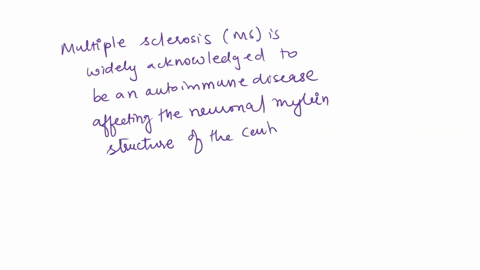 Multiple sclerosis (MS) is
widely acknowledged to
be an autoimmune disease
affecting the neuronal mylein
structure of the cent